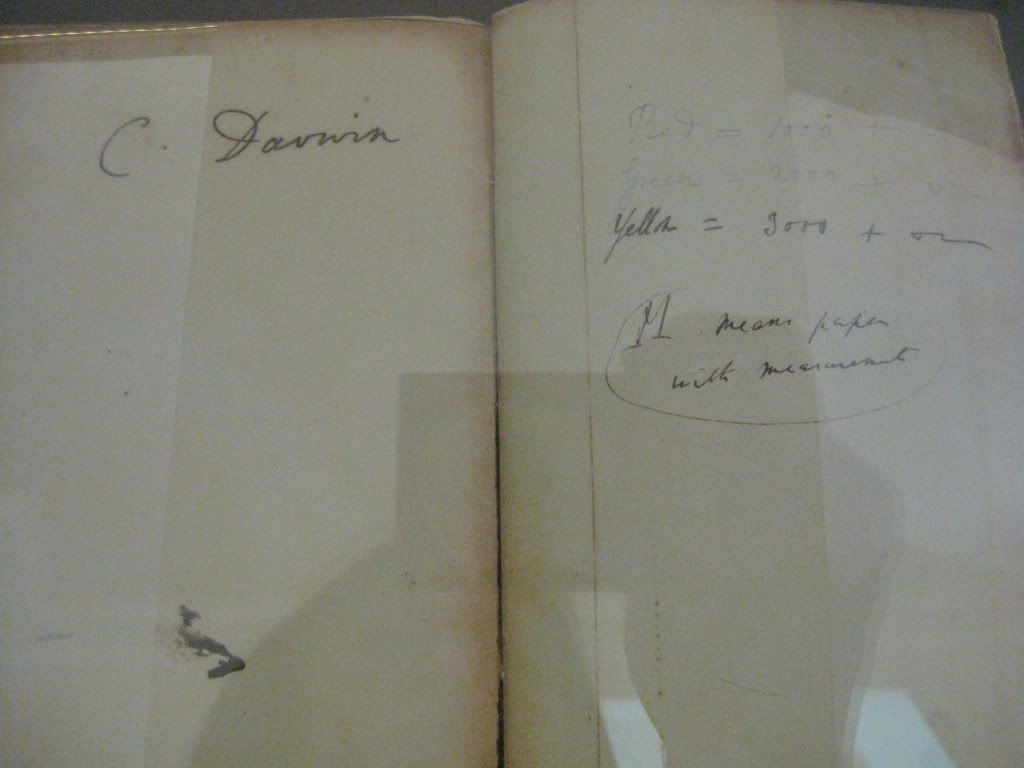 C. Darwin
Red = 1000 +
Green = 2000 +
Yellow = 3000 +
M means paper
with measurements